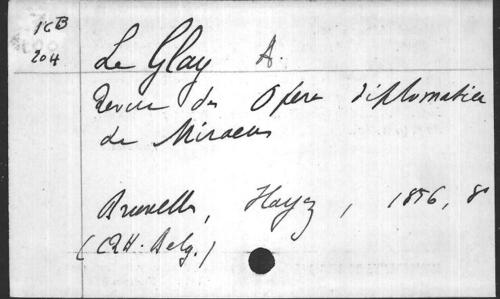 KB
204
Le Glay A.
Revue des Opera diplomatica
de Miraeus
Bruxelles, Hayez, 1856, 8°
(CRH. Belg.)